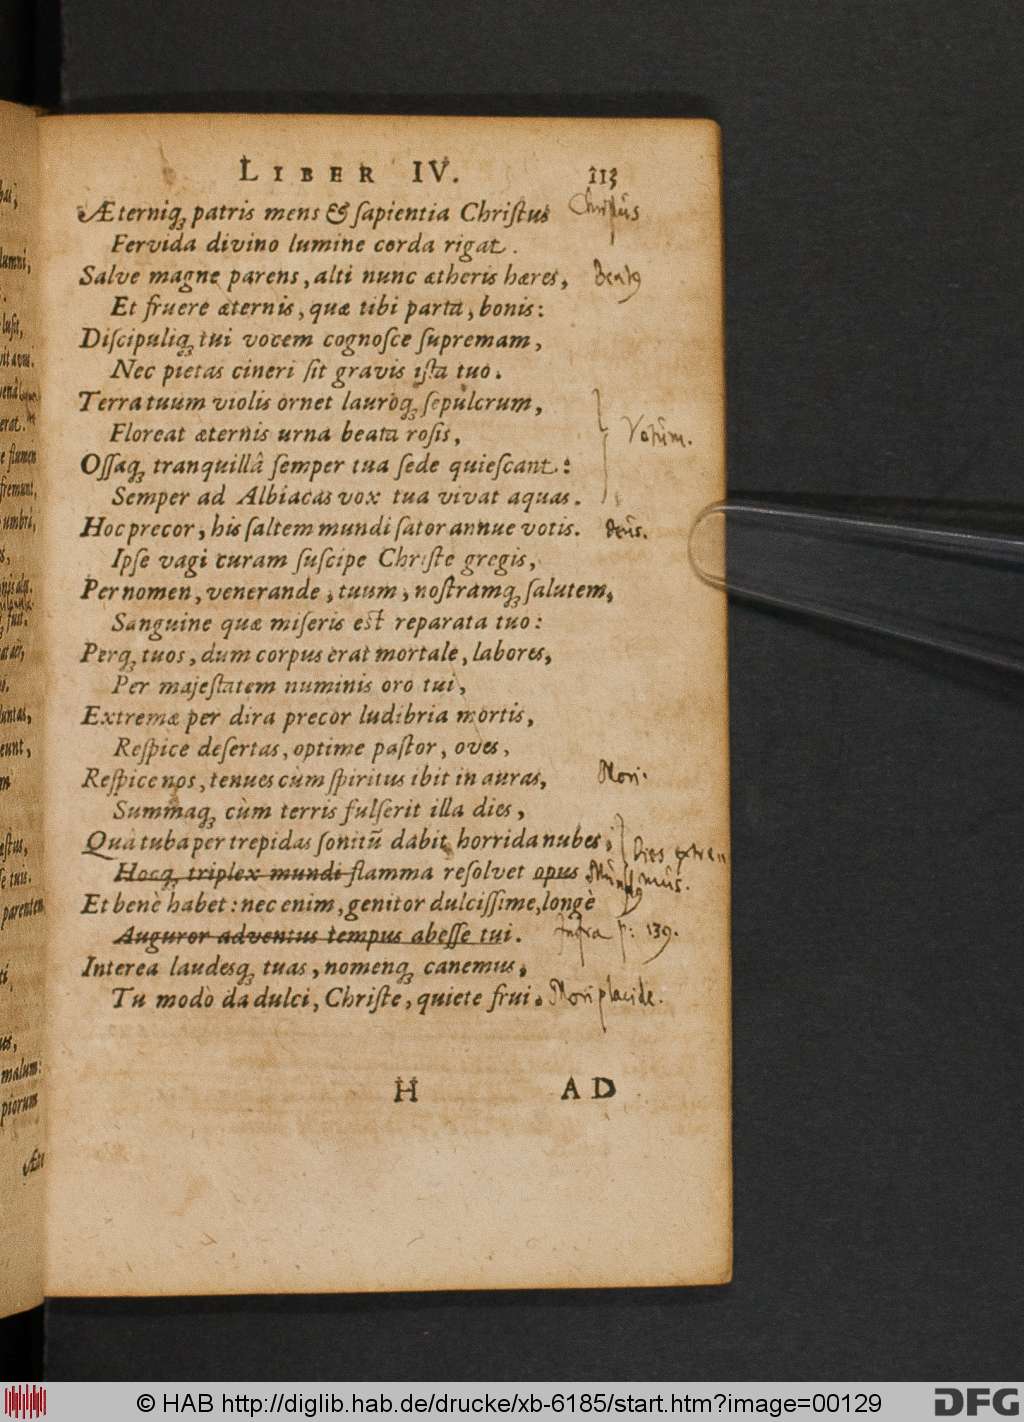 LIBER IV. 113
Æterniq; patris mens & sapientia Christus Christus
Fervida divino lumine corda rigat.
Salve magne parens, alti nunc ætheris hæres, Beatus
Et fruere æternis, quæ tibi parta, bonis:
Discipuliq; tui vocem cognosce supremam,
Nec pietas cineri sit gravis ista tuo.
Terra tuum violis ornet lauroq; sepulcrum,
Floreat æternis urna beata rosis, Votum.
Ossaq; tranquillâ semper tua sede quiescant:
Semper ad Albiacas vox tua vivat aquas.
Hoc precor, his saltem mundi sator annue votis. Deus.
Ipse vagi curam suscipe Christe gregis,
Per nomen, venerande, tuum, nostramq; salutem,
Sanguine quæ miseris est reparata tuo:
Perq; tuos, dum corpus erat mortale, labores,
Per majestatem numinis oro tui,
Extremæ per dira precor ludibria mortis,
Respice desertas, optime pastor, oves,
Respice nos, tenues cùm spiritus ibit in auras, Mori.
Summaq; cùm terris fulserit illa dies,
Quâ tuba per trepidas sonitũ dabit horrida nubes; Dies extrem
Hocq; triplex mundi flamma resolvet opus Mundus
Et benè habet: nec enim, genitor dulcissime, longè
Auguror adventus tempus abesse tui. Infra p: 139.
Interea laudesq; tuas, nomenq; canemus,
Tu modò da dulci, Christe, quiete frui. Mori placide.
H AD
© HAB http://diglib.hab.de/drucke/xb-6185/start.htm?image=00129
DFG